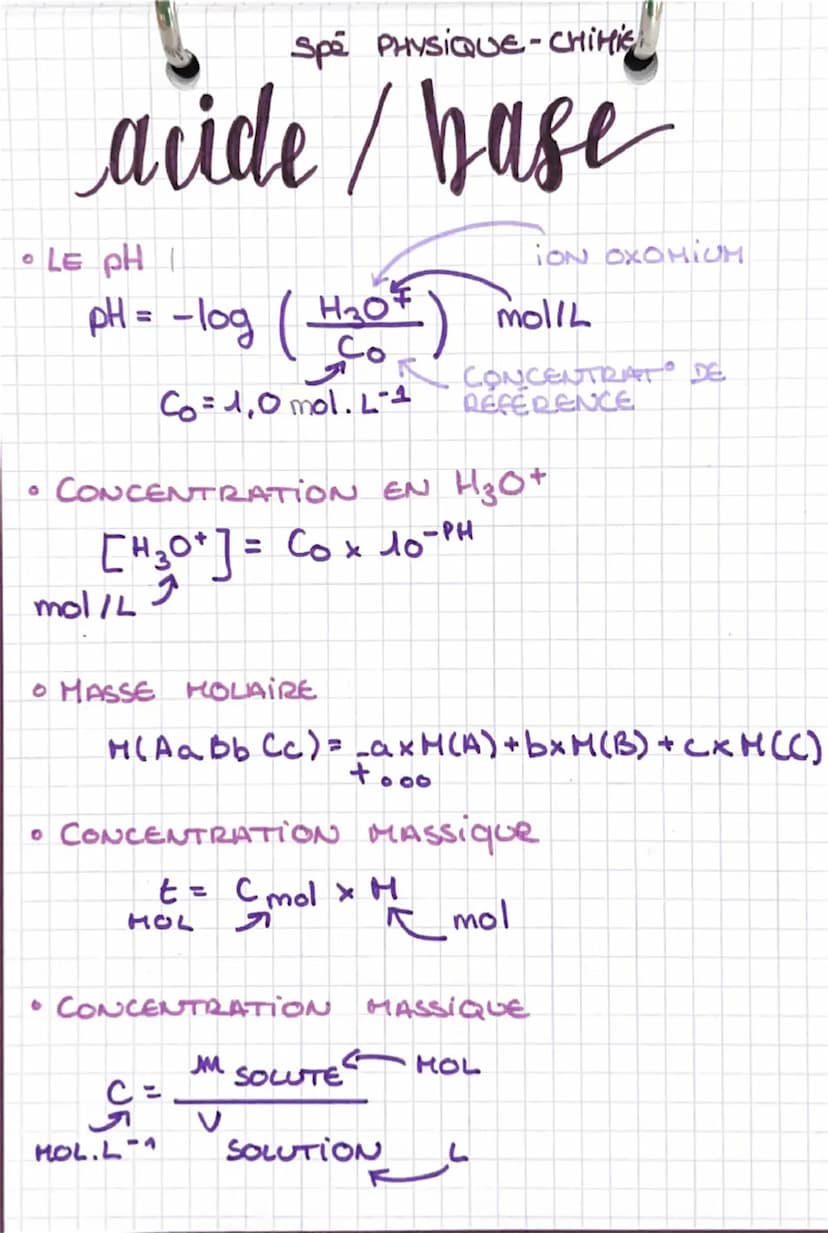 SPÉ PHYSIQUE-CHIMIE
acide / base
• LE pH
ION OXOMIUM
pH = -log ( H3O+ / C0 )
mol/L
CONCENTRAT° DE
RÉFÉRENCE
C0 = 1,0 mol.L-1
• CONCENTRATION EN H3O+
[H3O+] = C0 x 10-PH
mol/L
• MASSE MOLAIRE
M(AaBbCc) = -axM(A)+bxM(B)+cxM(C)
+...
• CONCENTRATION MASSIQUE
t = Cmol x M
MOL
mol
• CONCENTRATION MASSIQUE
C = m SOLUTE / V SOLUTION
MOL
MOL.L-1
L